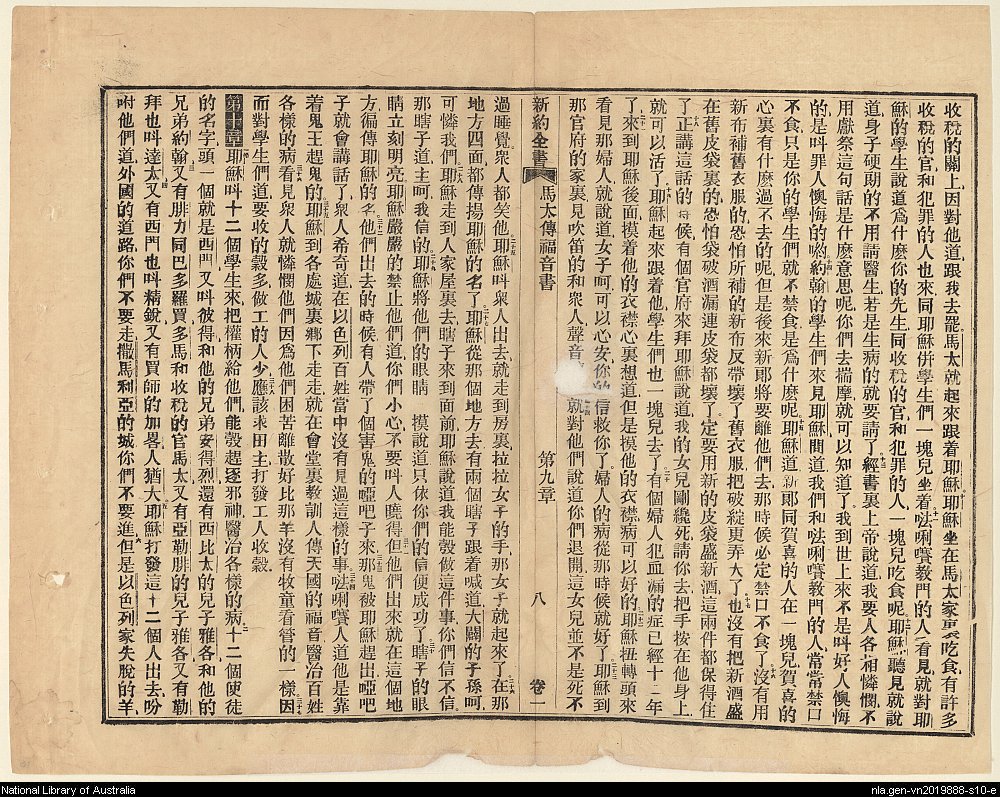 收稅的關上因對他道跟我去罷馬太就起來跟着耶穌耶穌坐在馬太家裏吃食有許多
收稅的官和犯罪的人也來同耶穌併學生們一塊兒坐着𠵽唎㘔教門的人看見就對耶
穌的學生說道爲什麽你的先生同收稅的官和犯罪的人一塊兒吃食呢耶穌聽見就說
道身子硬助的不用請醫生若是生病的就要請了經書裏上帝說道我要人各相憐憫不
用獻祭這句話是什麽意思呢你們去揣摩就可以知道了我到世上來不是呌好人懊悔
的是呌罪人懊悔的喲約翰的學生們來見耶穌問道我們和𠵽唎㘔教門的人常常禁口
不食只是你的學生們就不禁食是爲什麽呢耶穌道新郞同賀喜的人在一塊兒賀喜的
心裏有什麽過不去的呢但是後來新郞將要離他們去那時候必定禁口不食了沒有用
新布補舊衣服的恐怕所補的新布反帶壞了舊衣服把破綻更弄大了也沒有把新酒盛
在舊皮袋裏的恐怕袋破酒漏連皮袋都壞了定要用新的皮袋盛新酒這兩件都保得住
了正講這話的時候有個官府來拜耶穌說道我的女兒剛纔死請你去把手按在他身上
就可以活了耶穌起來跟着他學生們也一塊兒去了有個婦人犯血漏的症已經十二年
了來到耶穌後面摸着他的衣襟心裏想道但是摸他的衣襟病可以好的耶穌扭轉頭來
看見那婦人就說道女子呵可以心安你的信救你了婦人的病從那時候就好了耶穌到
那官府的家裏見吹笛的和衆人聲音就對他們說道你們退開這女兒並不是死不
新約全書 馬太傳福音書 第九章 八 卷一
過睡覺衆人都笑他耶穌呌衆人出去就走到房裏拉拉女子的手那女子就起來了在那
地方四面都傳揚耶穌的名了耶穌從那個地方去有兩個瞎子跟着喊道大闢的子孫呵
可憐我們耶穌走到人家屋裏去瞎子來到面前耶穌說道我能彀做這件事你們信不信
那瞎子道主呵我信的耶穌將他們的眼睛 摸說道只依你們的信便成功了瞎子的眼
睛立刻明亮耶穌嚴嚴的禁止他們道你們小心不要呌人曉得但他們出來就在這個地
方徧傳耶穌的名他們出去的時候有人帶了個害鬼的啞吧子來那鬼被耶穌趕出啞吧
子就會講話了衆人希奇道在以色列百姓當中沒有見過這樣的事𠵽唎㘔人道他是靠
着鬼王趕鬼的耶穌到各處城裏鄕下走走就在會堂裏教訓人傳天國的福音醫治百姓
各樣的病看見衆人就憐憫他們因爲他們困苦離散好比那羊沒有牧童看管的一樣因
而對學生們道要收的穀多做工的人少應該求田主打發工人收穀
第十章 耶穌呌十二個學生來把權柄給他們能彀趕逐邪神醫治各樣的病十二個使徒
的名字頭一個就是西門又呌彼得和他的兄弟安得烈還有西比太的兒子雅各和他的
兄弟約翰又有腓力同巴多羅買多馬和收稅的官馬太又有亞勒腓的兒子雅各又有勒
拜也呌達太又有西門也呌精銳又有買師的加畧人猶大耶穌打發這十二個人出去吩
咐他們道外國的道路你們不要走撒馬利亞的城你們不要進但是以色列家失脫的羊
National Library of Australia
nla.gen-vn2019888-s10-e